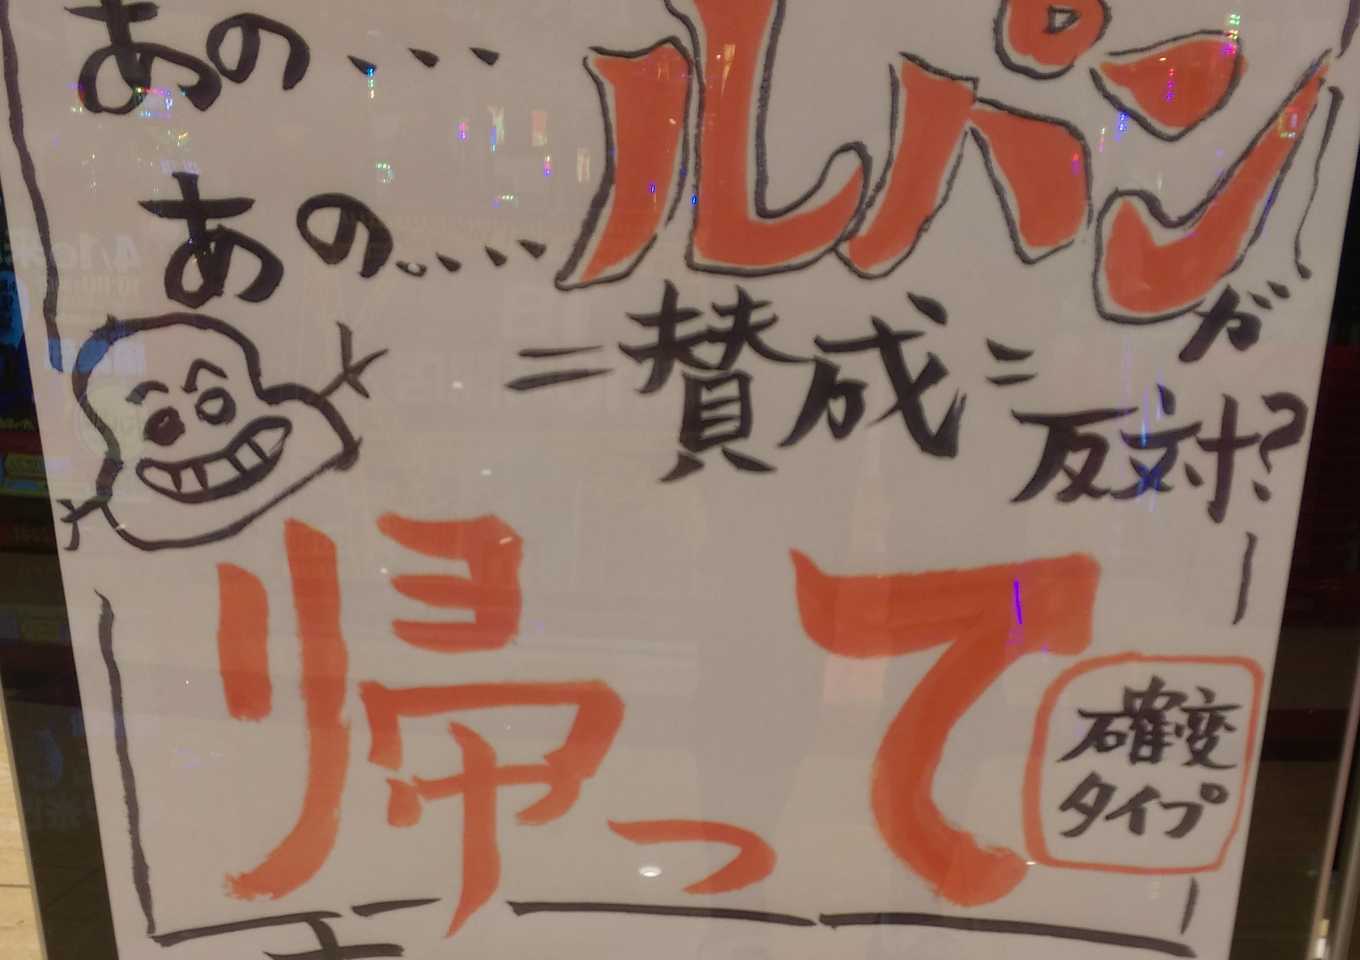 あの・・・
ルパンが
あの・・・・
=賛成=
反対?
帰って
確変
タイプ